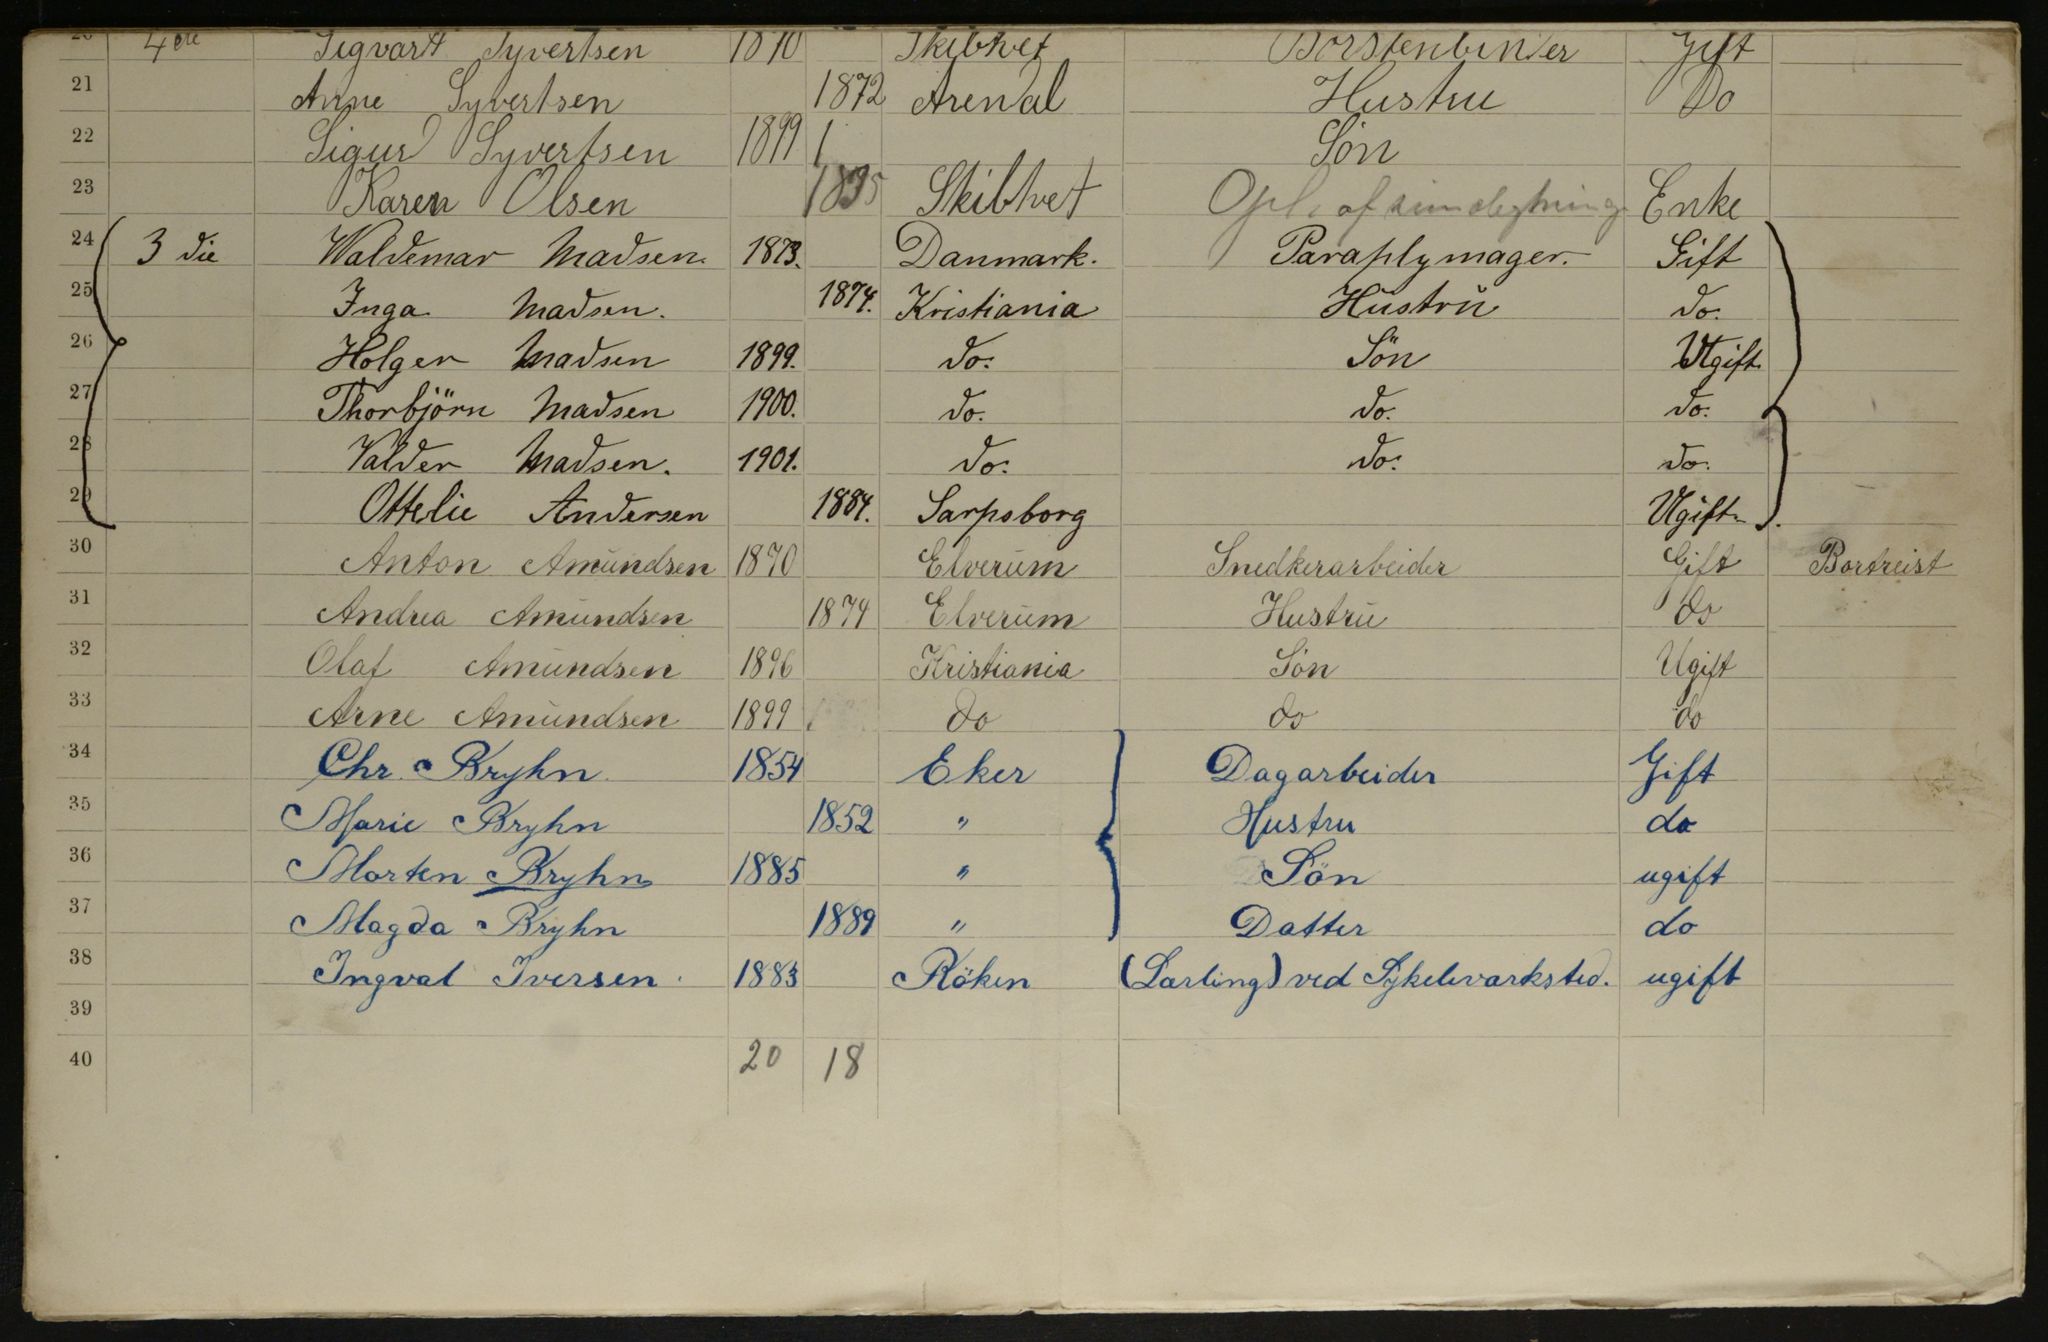 20 4de Sigvart Syvertsen 1870 Skibtvet Borstenbinder Gift
21 Anne Syvertsen 1872 Arendal Hustru Do
22 Sigurd Syvertsen 1899 1 Sön
23 Karen Olsen 1835 Skibtvet af Enke
24 3 die Waldemar Madsen. 1873. Danmark. Paraplymager. Gift
25 Inga Madsen. 1874. Kristiania Hustru do.
26 Holger Madsen 1899. do. Sön Utgift
27 Thorbjörn Madsen 1900. do. do. do.
28 Valder Madsen. 1901. do. do. do.
29 Ottelie Andersen 1884. Sarpsborg Ugift
30 Anton Amundsen 1870 Elverum Snedkerarbeider Gift Bortreist
31 Andrea Amundsen 1874 Elverum Hustru do
32 Olaf Amundsen 1896 Kristiania Sön Ugift
33 Arne Amundsen 1899 do do do
34 Chr. Bryhn 1854 Eker Dagarbeider Gift
35 Marie Bryhn 1852 " Hustru do
36 Morten Bryhn 1885 " Sön ugift
37 Magda Bryhn 1889 " Datter do
38 Ingval Iversen. 1883 Röken (Larling) ved Sykelvarksted. ugift
39
40 20 18